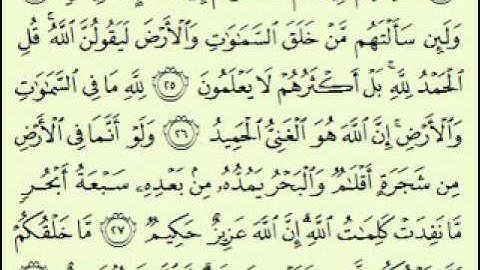 وَلَئِن سَأَلْتَهُم مَّنْ خَلَقَ السَّمَاوَاتِ وَالْأَرْضَ لَيَقُولُنَّ اللَّهُ ۚ قُلِ
الْحَمْدُ لِلَّهِ ۚ بَلْ أَكْثَرُهُمْ لَا يَعْلَمُونَ ٢٥ لِلَّهِ مَا فِي السَّمَاوَاتِ
وَالْأَرْضِ ۚ إِنَّ اللَّهَ هُوَ الْغَنِيُّ الْحَمِيدُ ٢٦ وَلَوْ أَنَّمَا فِي الْأَرْضِ
مِن شَجَرَةٍ أَقْلَامٌ وَالْبَحْرُ يَمُدُّهُ مِن بَعْدِهِ سَبْعَةُ أَبْحُرٍ
مَّا نَفِدَتْ كَلِمَاتُ اللَّهِ ۗ إِنَّ اللَّهَ عَزِيزٌ حَكِيمٌ ٢٧ مَّا خَلْقُكُمْ